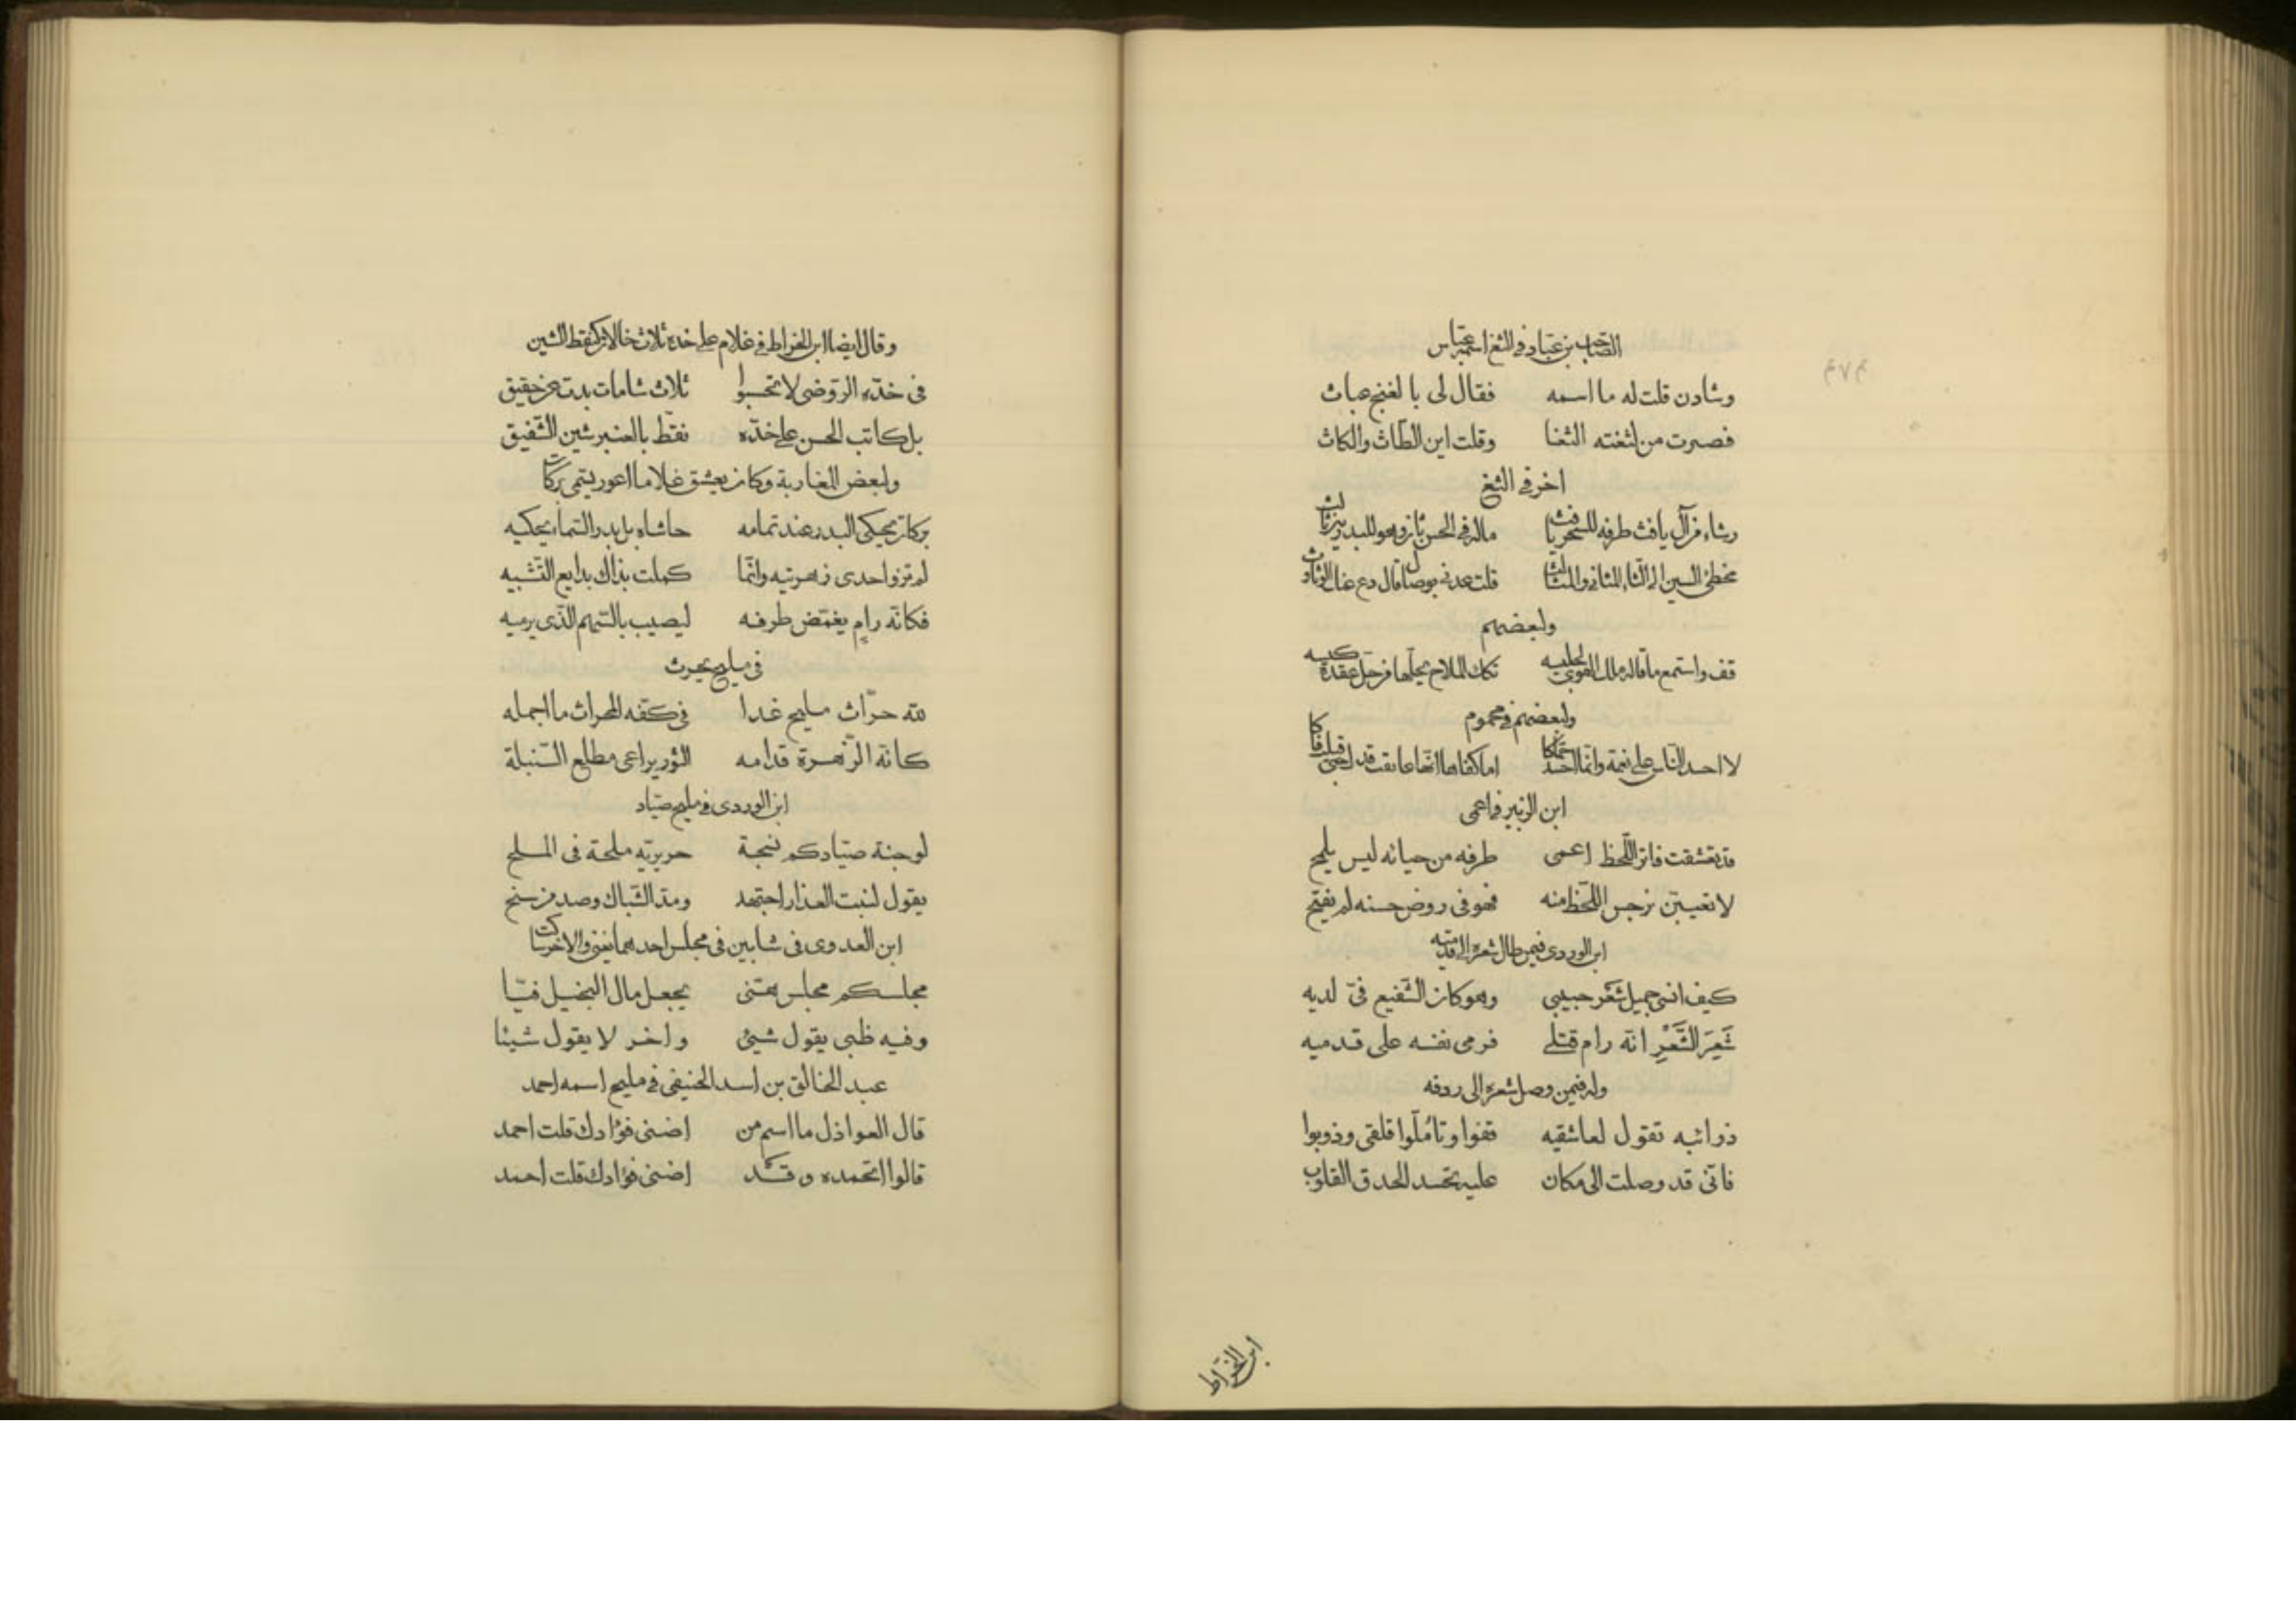 الصاحب بن عباد في الثغ اسمه عباس
وشادن قلت له ما اسمه فقال لى بالغنج عباث
فصرت من لثغته الثغا وقلت اين الطاث والكاث
اخر في الثغ
رشاء من آل يافث طرفه للسحر نافث ماله في الحسن ثان وهو للبدرين ثالث
مخطئ السين الى الثاء المثانى والمثالث قلت عدنى بوصال قال دع عنك
ولبعضهم
قف واستمع ما قاله ملك الهوى تكك الملاح يحلها من حل عقدة كيسه
ولبعضهم في محموم
لا احسد الناس على نعمة وانما احسد حماكا اما كفاها انها عانقت قدك حتى قبلت فاكا
ابن الزبير في اعمى
قد تعشقت فاتر اللحظ اعمى طرفه من حيائه ليس يلمح
لا تعيبن نرجس اللحظ منه فهو فى روض حسنه لم يفتح
ابن الوردى فيمن طال شعره الى قدميه
كيف انسى جميل شعر حبيبى وهو كان الشفيع فىّ لديه
شَعَرَ الشَّعْرِ انه رام قتلى فرمى نفسه على قدميه
وله فيمن وصل شعره الى ردفه
ذوائبه تقول لعاشقيه قفوا وتأملوا قلقى وذوبوا
فانى قد وصلت الى مكان عليه تحسد الحدق القلوب
ابن الخراط
وقال ايضا ابن الخراط في غلام على خده ثلاث خالات كنقط الشين
فى خده الروضى لا تحسبوا ثلاث شامات بدت عن حقيق
بل كاتب الحسن على خده نقط بالعنبر شين الشقيق
ولبعض المغاربة وكان يعشق غلاما اعور يسمى بركات
بركات يحكى البدر عند تمامه حاشاه بل بدر السماء يحكيه
لم تزو احدى زهرتيه وانما كملت بذاك بدايع التشبيه
فكانه رامٍ يغمض طرفه ليصيب بالسهم الذى يرميه
فى مليح يحرث
لله حراث مليح غدا فى كفه المحراث ما اجمله
كانه الزهرة قدامه الثور يراعى مطلع السنبلة
ابن الوردى فى مليح صياد
لوجنة صيادكم نسخة حريريه ملحة فى الملح
يقول لنبت العذار اجتهد ومد الشباك وصد من سنح
ابن العدوى فى شابين فى مجلس احدهما يغنى والاخر ساكت
مجلسكم مجلس هنى يجعل مال البخيل فيّا
وفيه ظبى يقول شيئ واخر لا يقول شيئا
عبد الخالق بن اسد الحنيفى فى مليح اسمه احمد
قال العواذل ما اسم من اضنى فؤادك قلت احمد
قالوا اتحمده وقد اضنى فؤادك قلت احمد